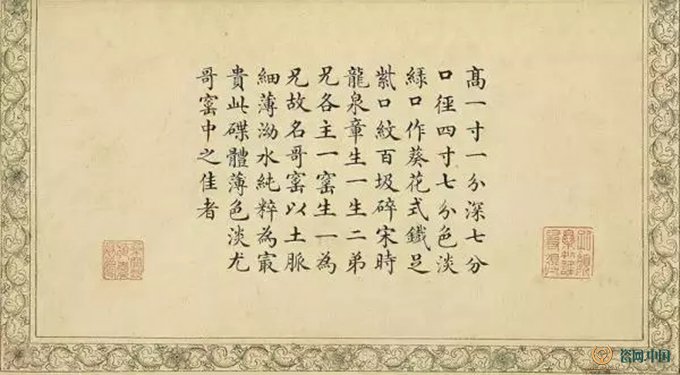 髙一寸一分深七分
口徑四寸七分色淡
緑口作葵花式鐵足
紫口紋百圾碎宋時
龍泉章生一生二弟
兄各主一窑生一為
兄故名哥窑以土脈
細薄泑水純粹為㝡
貴此碟體薄色淡尤
哥窑中之佳者
瓷网.中国